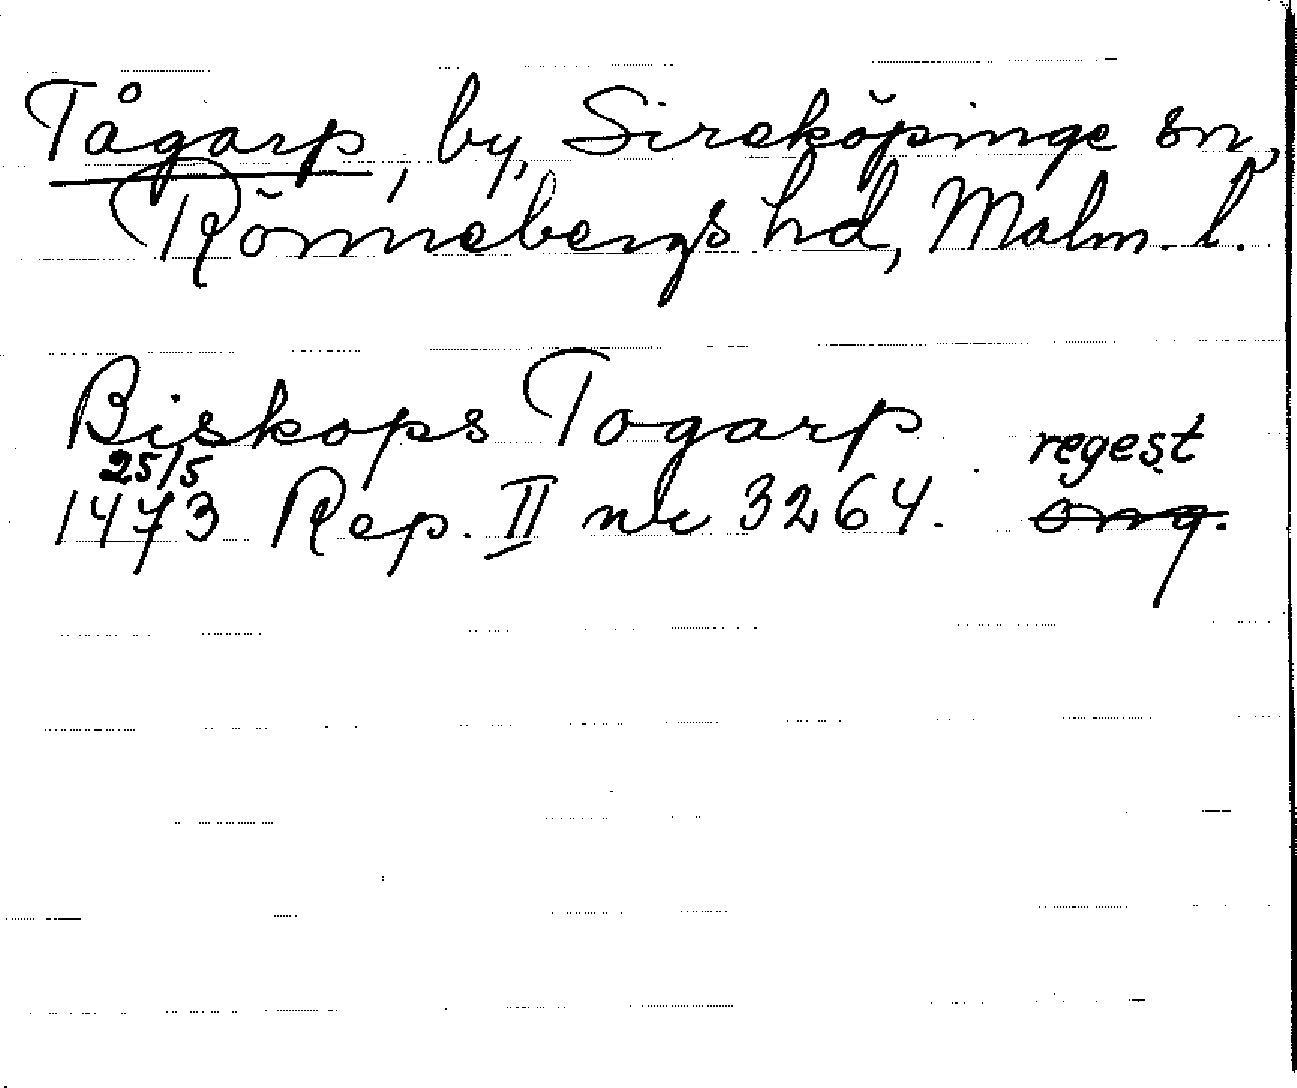 Tågarp, by, Sireköpinge sn,
Rönnebergs hd, Malm. l.
Biskops Togarp
25/5 regest
1473 Rep. II nr 3264. omg.